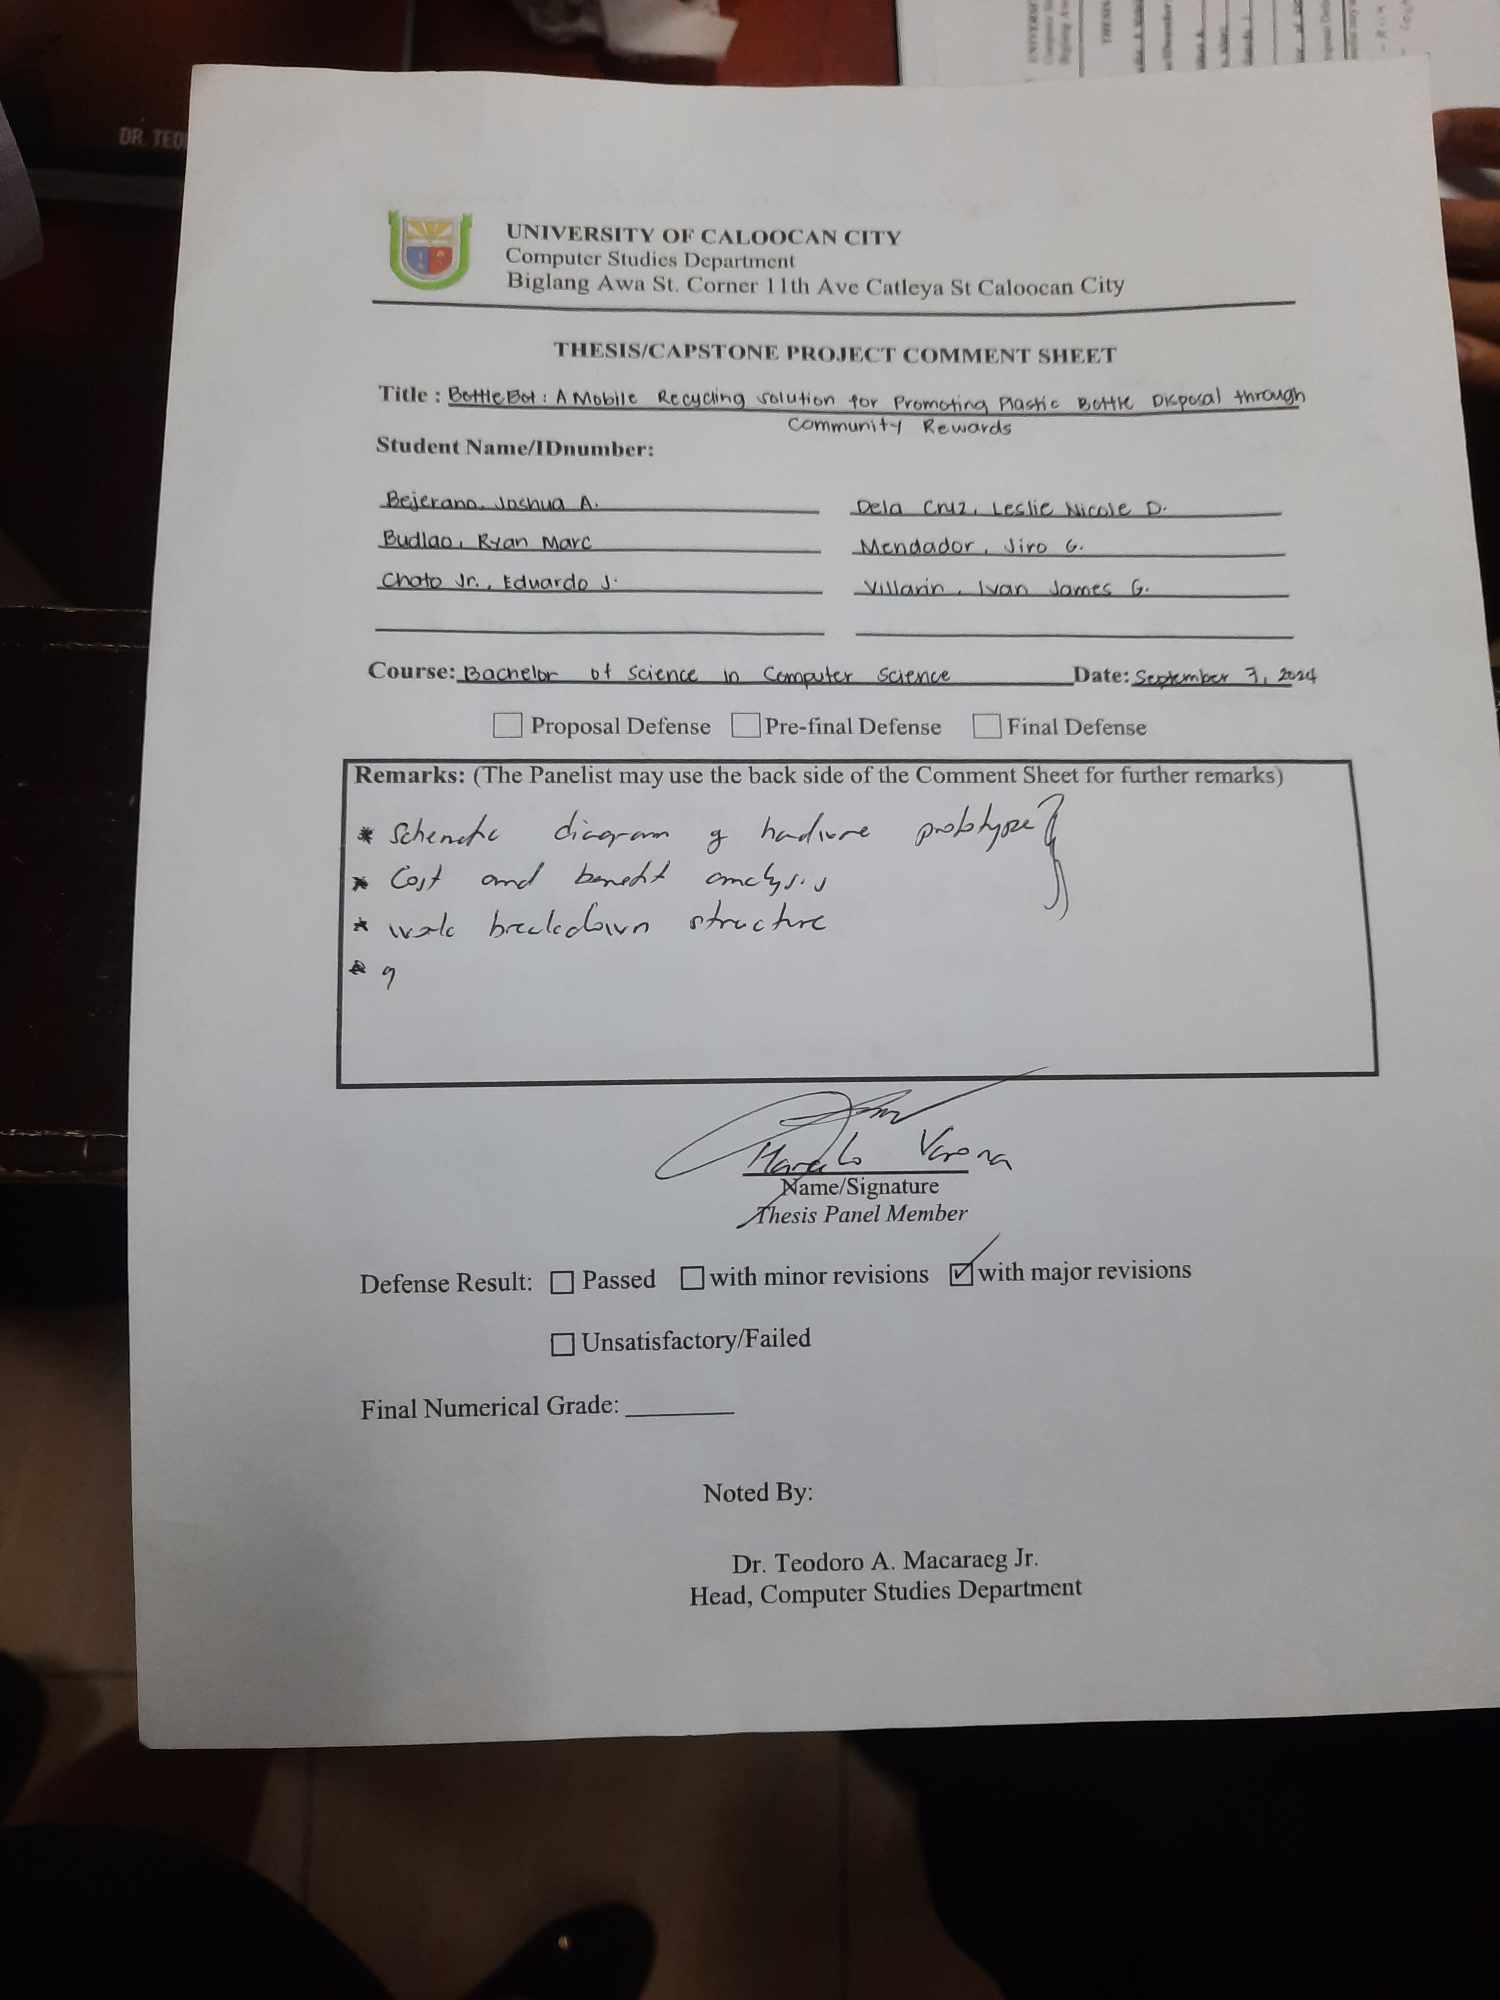 DR. TEO
UNIVERSITY OF CALOOCAN CITY
Computer Studies Department
Biglang Awa St. Corner 11th Ave Catleya St Caloocan City
THESIS/CAPSTONE PROJECT COMMENT SHEET
Title : BottleBot: A Mobile Recycling solution for Promoting Plastic Bottle Disposal through
Community Rewards
Student Name/IDnumber:
Bejerano, Joshua A. Dela Cruz, Leslie Nicole D.
Budlao, Ryan Marc Mendador, Jiro G.
Choto Jr., Eduardo J. Villarin, Ivan James G.
Course: Bachelor of Science in Computer Science Date: September 7, 2024
Proposal Defense Pre-final Defense Final Defense
Remarks: (The Panelist may use the back side of the Comment Sheet for further remarks)
* Schematic diagram of hardware prototype
* Cost and benefit analysis
* work breakdown structure
*
Varona
Name/Signature
Thesis Panel Member
Defense Result: Passed with minor revisions with major revisions
Unsatisfactory/Failed
Final Numerical Grade:
Noted By:
Dr. Teodoro A. Macaraeg Jr.
Head, Computer Studies Department